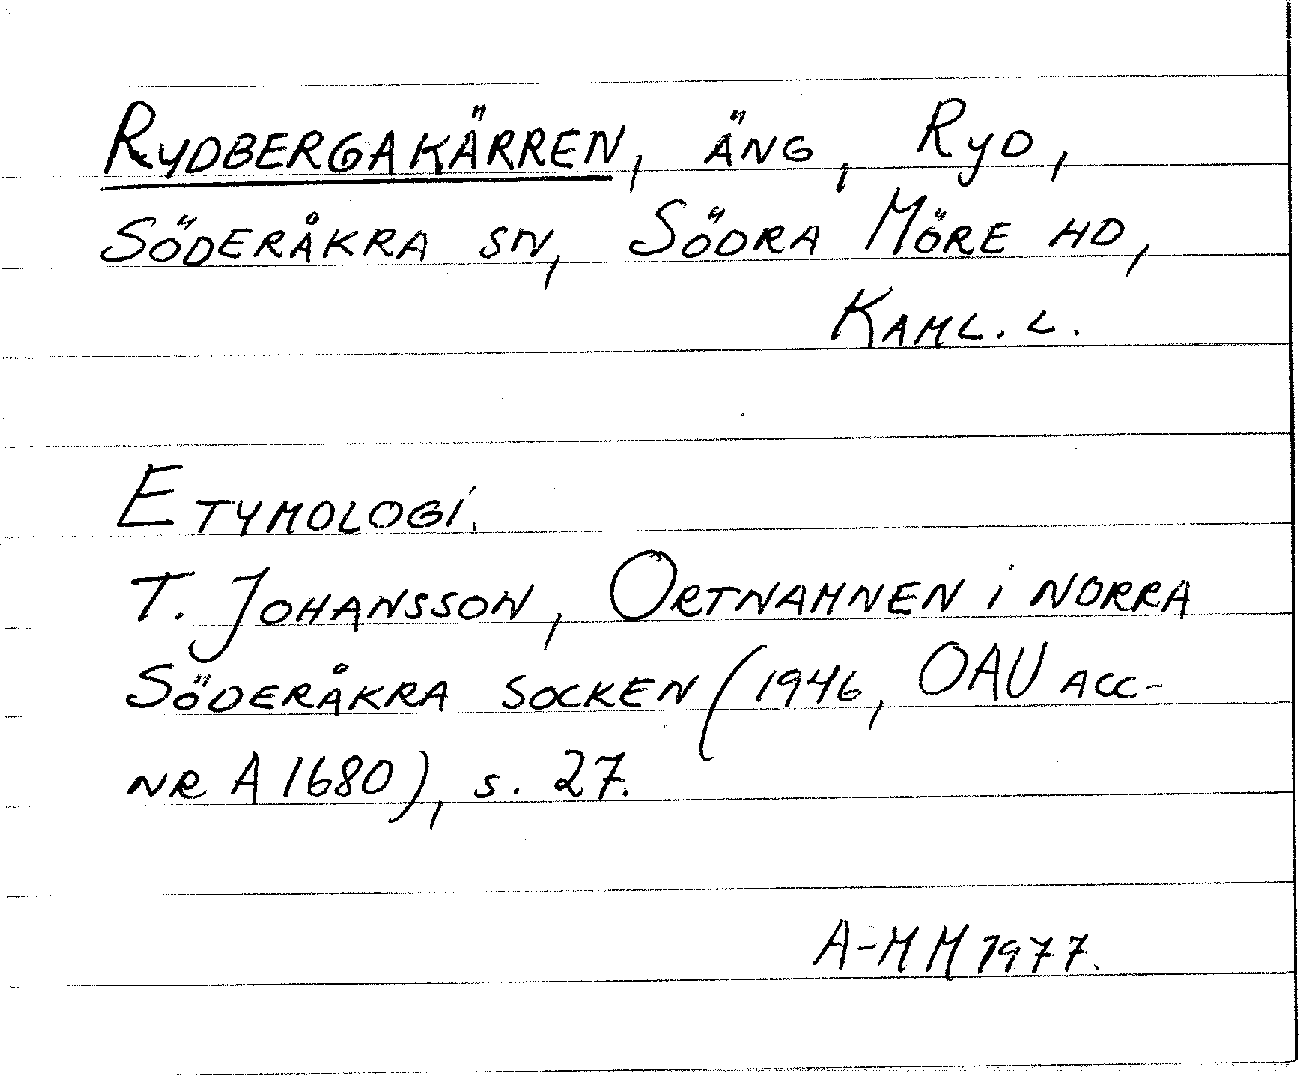 Rydbergakärren, äng, Ryd,
Söderåkra sn, Södra Möre hd,
Kaml. l.
Etymologi.
T. Johansson, Ortnamnen i norra
Söderåkra socken (1946, OAU acc-
nr A 1680), s. 27.
A-MM 1977.